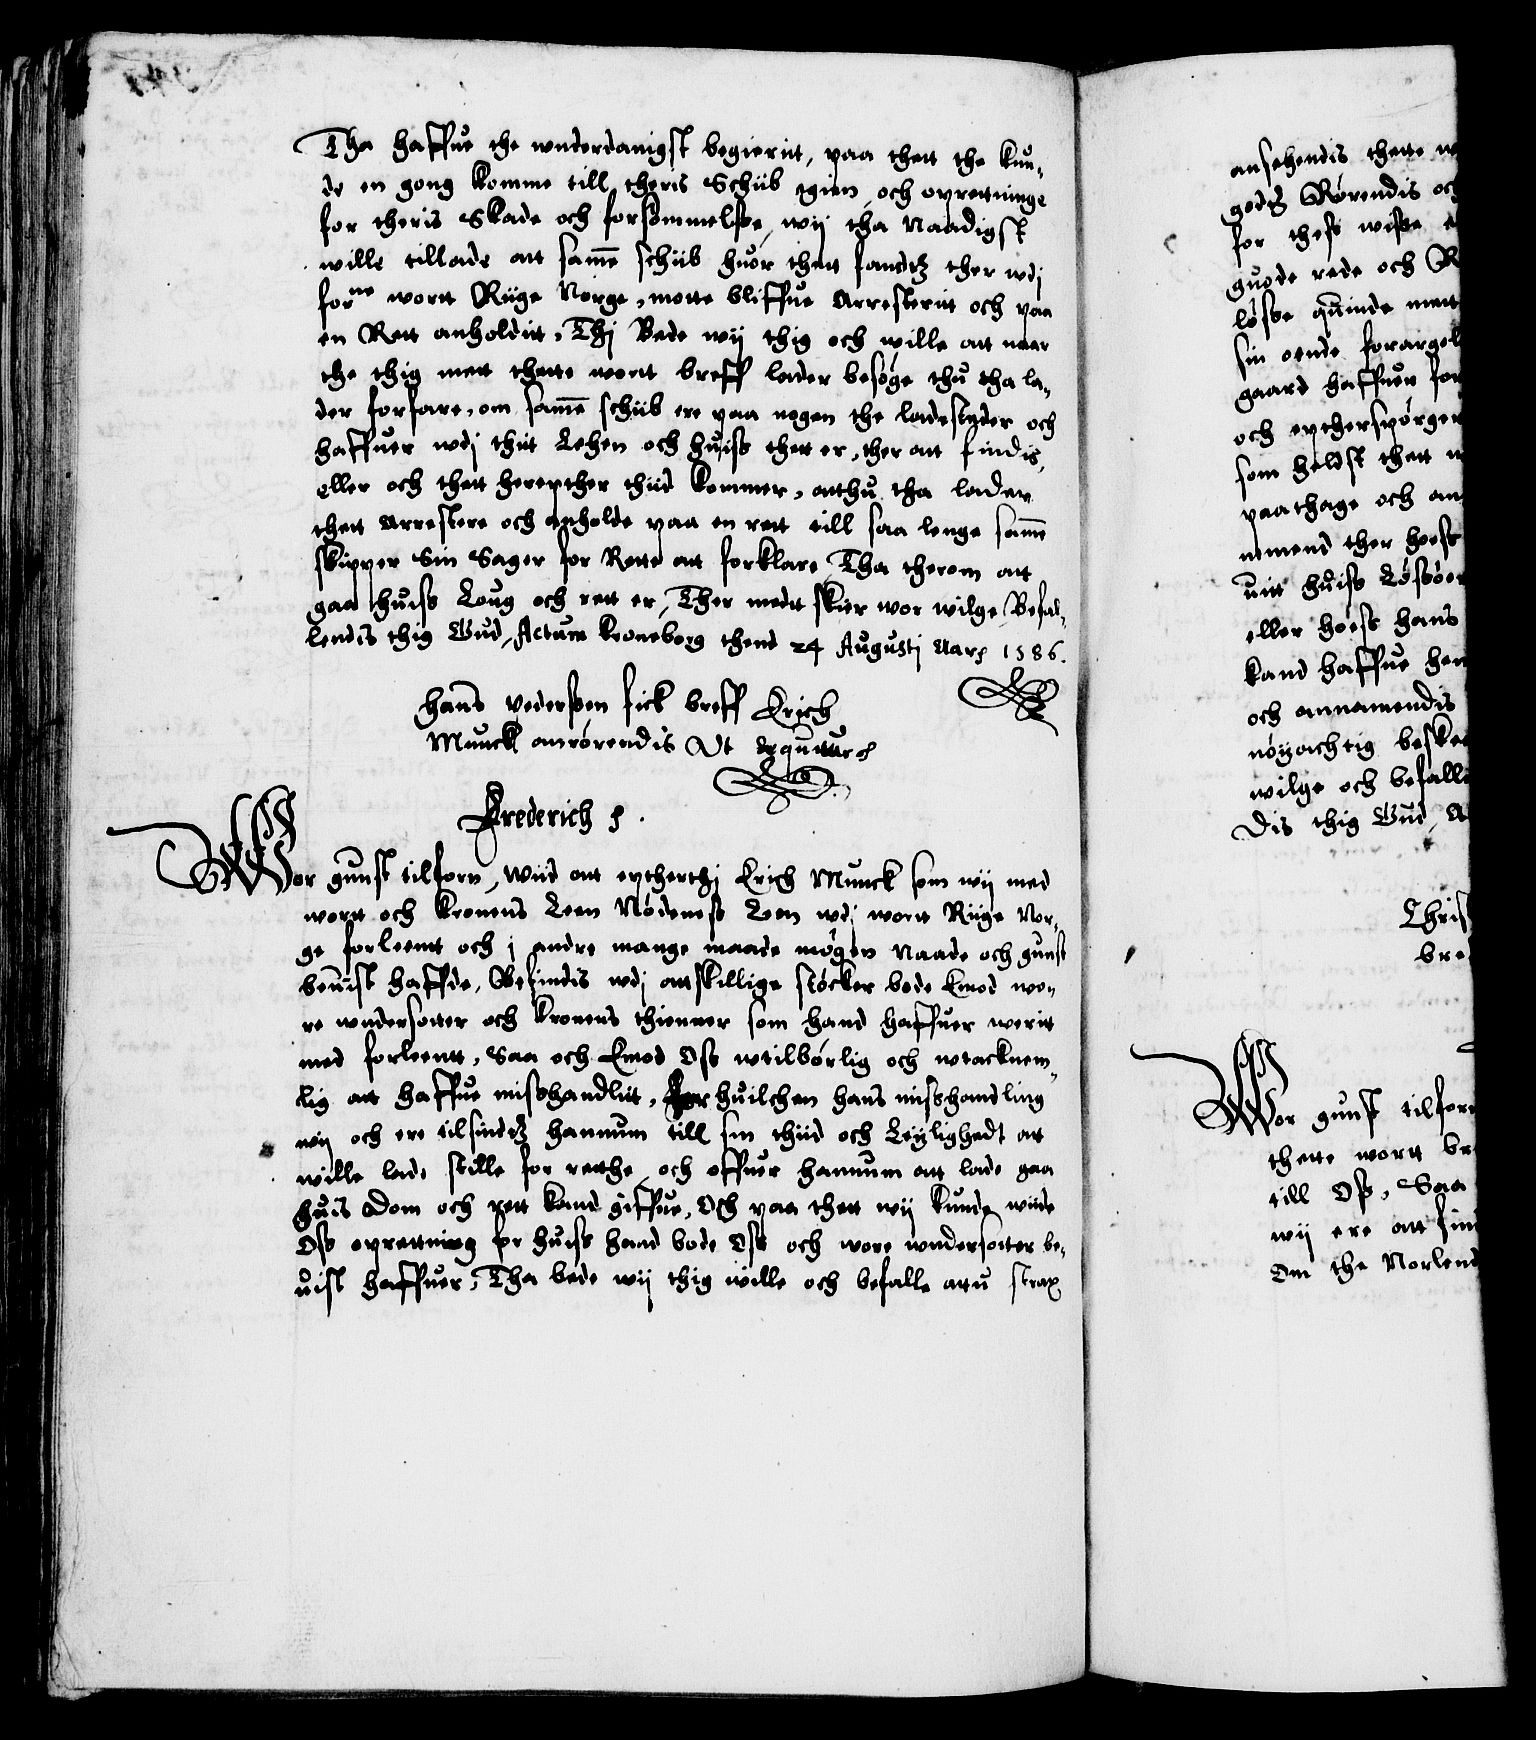 Tha haffue the wnderdanigst begierit, paa thett the kun-
de en gong komme till theris Schiib igien, och opretninge
for theris Skade och forsømmelsse, wij tha Naadigst
wille tillade att same schiib huor thett fandtz ther wdj
forne wortt Riige Norge, motte bliffue Arresterit och paa
en Rett anholdiit, Thj Bede wij thig och wille att naar
the thig mett thette wortt breff lader besøge thu tha la-
der forfare, om same schiib ere paa nogen the ladesteder och
haffuer wdj thiit Lehen och huiss thett er, ther att findis,
eller och thett herepther thiid kommer, atthu tha lader
thett Arrestere och anholde paa en rett till saa lenge same
skipper Sin Sager for Rette att forklare Tha therom att
gaa huiss Loug och rett er, Ther medt skier wor wilge, Befal-
lendis thig Gud, Actum Kroneborg thend 24 Augustj Aar 1586.
Hans pederssen fick breff Erich
Munck anrørendis Vt Sequitur
Frederich
Wor gunst tilforn, Wiid att eptherthj Erich Munck som wij med
wortt och Kronens Leen Nødenes Leen wdj wortt Riige Nor-
ge forleentt och j andre mange maade møgen Naade och gunst
beuist haffde, Befindis wdj attskillige støcker bode Emod wo-
re wndersotter och Kronens thienner som hand haffuer werit
med forleentt, Saa och Emod Oss wtilbørlig och wtacknem-
lig att haffue misshandlitt, For huilchen hans misshandling
wij och ere tilsindtz hannum till sin thiid och Leylighedt att
wille lade stille for rætthe och offuer hannum att lade gaa
huis Dom och rett kand giffue, Och paa thett wij kunde wiide
Oss oprettning for huiss hand bode Oss och wore wndersotter be-
uist haffuer, Tha bede wij thig wille och befalle attu strax
ansehendis thette
godtz Rørendis och
for thess wisse
guode rede och
løsse quinde mett
sin onde forargel
gaard haffuer for
och eptherspørger
som heldst thett
paathage och an
nemend ther hoess
uitt huiss Løssøer
eller hoess hans
kand haffue her
och annamendis
nøyachtig beske
wilge och befall
Dis thig Gud, A
Chris
bre
Wor gunst tilforn
thette wortt br
till Oss, Saa
wij ere att sin
Om the Norlend